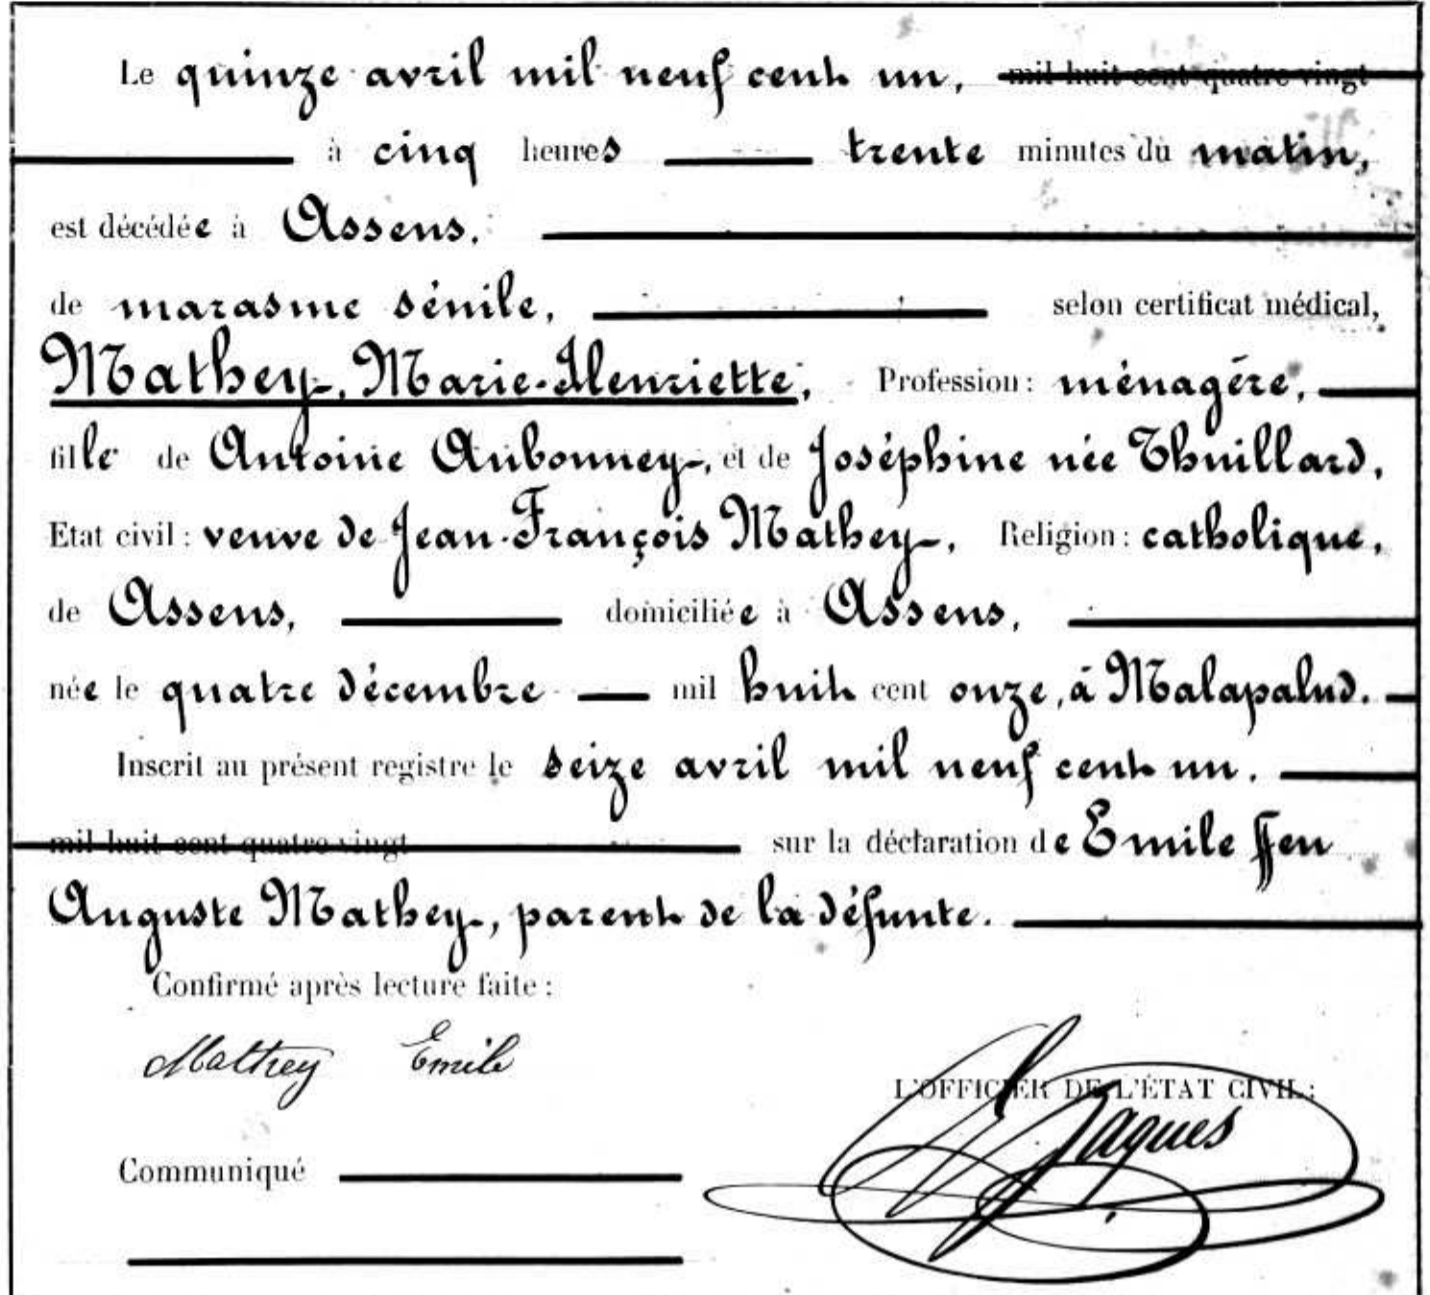 Le quinze avril mil neuf cent un, mil huit cent quatre vingt
à cinq heures trente minutes du matin,
est décédée à Assens.
de marasme sénile, selon certificat médical,
Mathey, Marie-Henriette, Profession : ménagère,
fille de Antoine Aubonney, et de Joséphine née Thuillard,
Etat civil : veuve de Jean-François Mathey, Religion : catholique,
de Assens, domiciliée à Assens,
née le quatre décembre mil huit cent onze, à Malapalud.
Inscrit au présent registre le seize avril mil neuf cent un.
mil huit cent quatre vingt sur la déclaration de Emile ffeu
Auguste Mathey, parent de la défunte.
Confirmé après lecture faite :
Mathey Emile
L'OFFICIER DE L'ÉTAT CIVIL :
Jaques
Communiqué